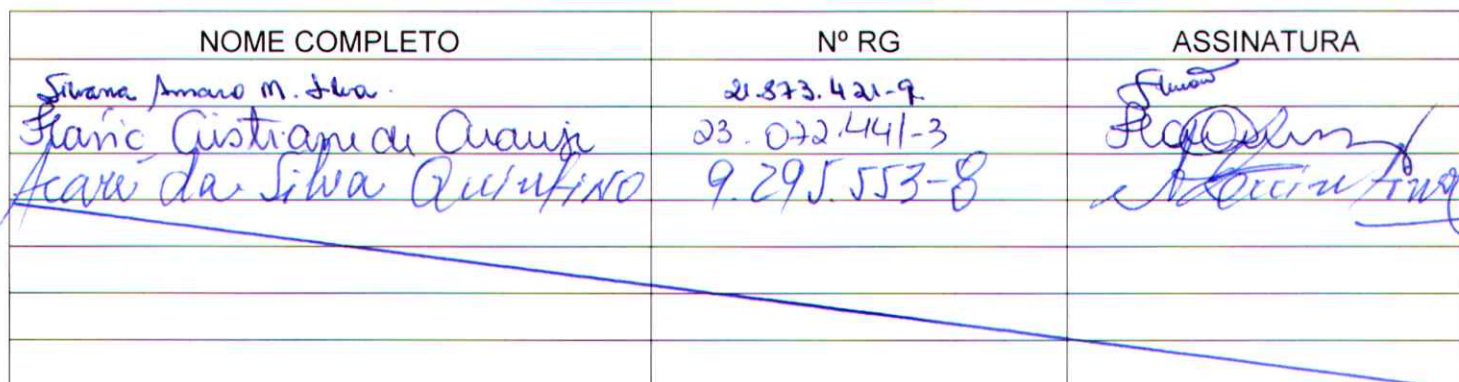 NOME COMPLETO Nº RG ASSINATURA
Silvana Amaro M. Silva. 21.873.421-9
Flavia Cristiane de Araujo 23.072.441-3
Acaré da Silva Quintino 9.295.553-8 Quintino